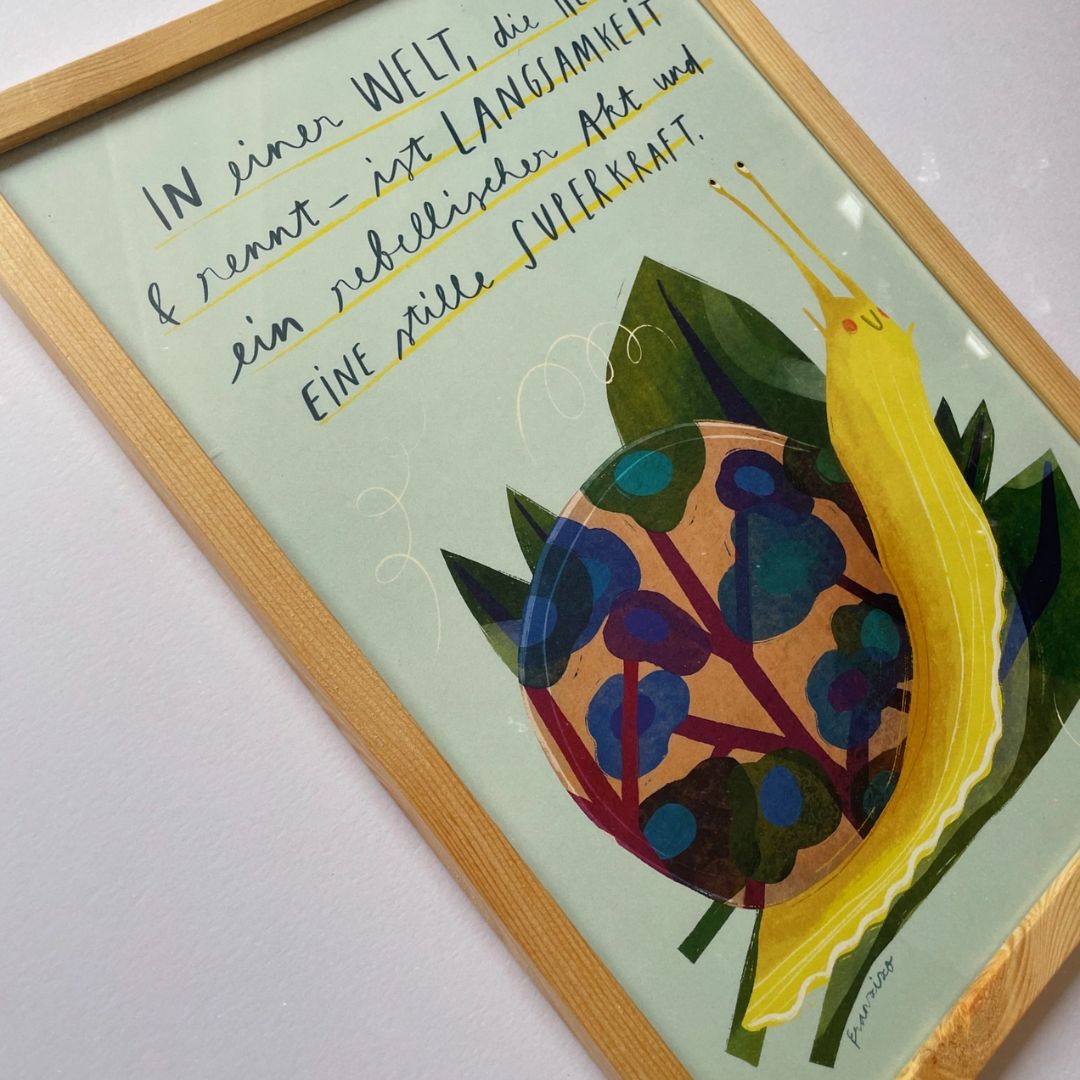 IN einer WELT, die
& rennt – ist LANGSAMKEIT
ein rebellischer Akt und
EINE stille SUPERKRAFT.
Franzizo